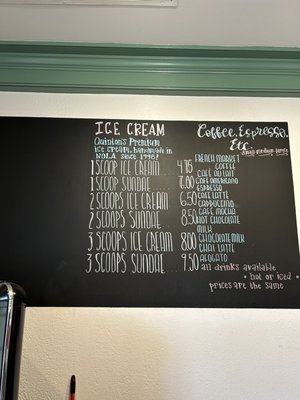 ICE CREAM
Quintin's Premium
ice cream, handmade in
NOLA since 1998!
1 SCOOP ICE CREAM ... 4.75
1 SCOOP SUNDAE ... 6.00
2 SCOOPS ICE CREAM 6.50
2 SCOOPS SUNDAE 8.50
3 SCOOPS ICE CREAM 8.00
3 SCOOPS SUNDAE ... 9.50
Coffee, Espresso,
Etc.
small medium large
FRENCH MARKET
COFFEE
CAFE AU LAIT
CAFE AMERICANO
ESPRESSO
CAFE LATTE
CAPPUCCINO
CAFE MOCHA
HOT CHOCOLATE
MILK
CHOCOLATE MILK
CHAI LATTE
AFOGATO
all drinks available
• hot or iced •
prices are the same